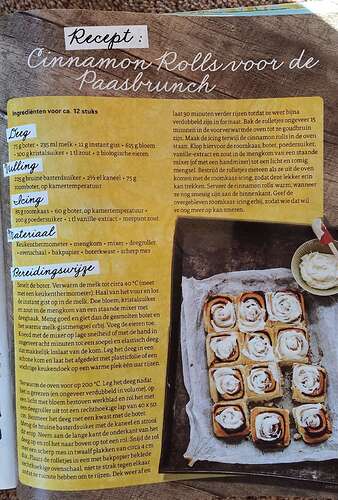 Recept:
Cinnamon Rolls voor de
Paasbrunch
Ingrediënten voor ca. 12 stuks
Deeg
75 g boter • 235 ml melk • 11 g instant gist • 625 g bloem
• 100 g kristalsuiker • 1 tl zout • 2 biologische eieren
Vulling
225 g bruine basterdsuiker • 2½ el kaneel • 75 g
roomboter, op kamertemperatuur
Icing
85 g roomkaas • 60 g boter, op kamertemperatuur •
200 g poedersuiker • 1 tl vanille-extract • mespunt zout
Materiaal
Keukenthermometer • mengkom • mixer • deegroller
• ovenschaal • bakpapier • boterkwast • scherp mes
Bereidingswijze
Smelt de boter. Verwarm de melk tot circa 40 °C (meet
met een keukenthermometer). Haal van het vuur en los
de instant gist op in de melk. Doe bloem, kristalsuiker
en zout in de mengkom van een staande mixer met
deeghaak. Meng goed en giet dan de gesmolten boter en
het warme melk-gistmengsel erbij. Voeg de eieren toe.
Kneed met de mixer op lage snelheid of met de hand in
ongeveer acht minuten tot een soepel en elastisch deeg
dat makkelijk loslaat van de kom. Leg het deeg in een
kom en laat het afgedekt met plasticfolie of een
vochtige keukendoek op een warme plek één uur rijzen.
Verwarm de oven voor op 200 °C. Leg het deeg nadat
het is gerezen (en ongeveer verdubbeld in volume), op
een licht met bloem bestoven werkblad en rol het met
een deegroller uit tot een rechthoekige lap van 40 x 50
cm. Besmeer het deeg met een kwast met de boter.
Meng de bruine basterdsuiker met de kaneel en strooi
dit erop. Neem aan de lange kant de onderkant van het
deeg en rol het naar boven op tot een rol. Snijd de rol
met een scherp mes in twaalf plakken van circa 4 cm
dik. Plaats de rolletjes in een met bakpapier beklede
rechthoekige ovenschaal, niet te strak tegen elkaar
omdat ze ruimte hebben om te rijzen. Dek weer af en
laat 30 minuten verder rijzen totdat ze weer bijna
verdubbeld zijn in formaat. Bak de rolletjes ongeveer 15
minuten in de voorverwarmde oven tot ze goudbruin
zijn. Maak de icing terwijl de cinnamon rolls in de oven
staan. Klop hiervoor de roomkaas, boter, poedersuiker,
vanille-extract en zout in de mengkom van een staande
mixer (of met een handmixer) tot een licht en romig
mengsel. Bestrijk de rolletjes meteen als ze uit de oven
komen met de roomkaas icing, zodat deze lekker erin
kan trekken. Serveer de cinnamon rolls warm, wanneer
ze nog smeuïg zijn aan de binnenkant. Geef de
overgebleven roomkaas icing erbij, zodat wie dat wil
er nog meer op kan smeren.